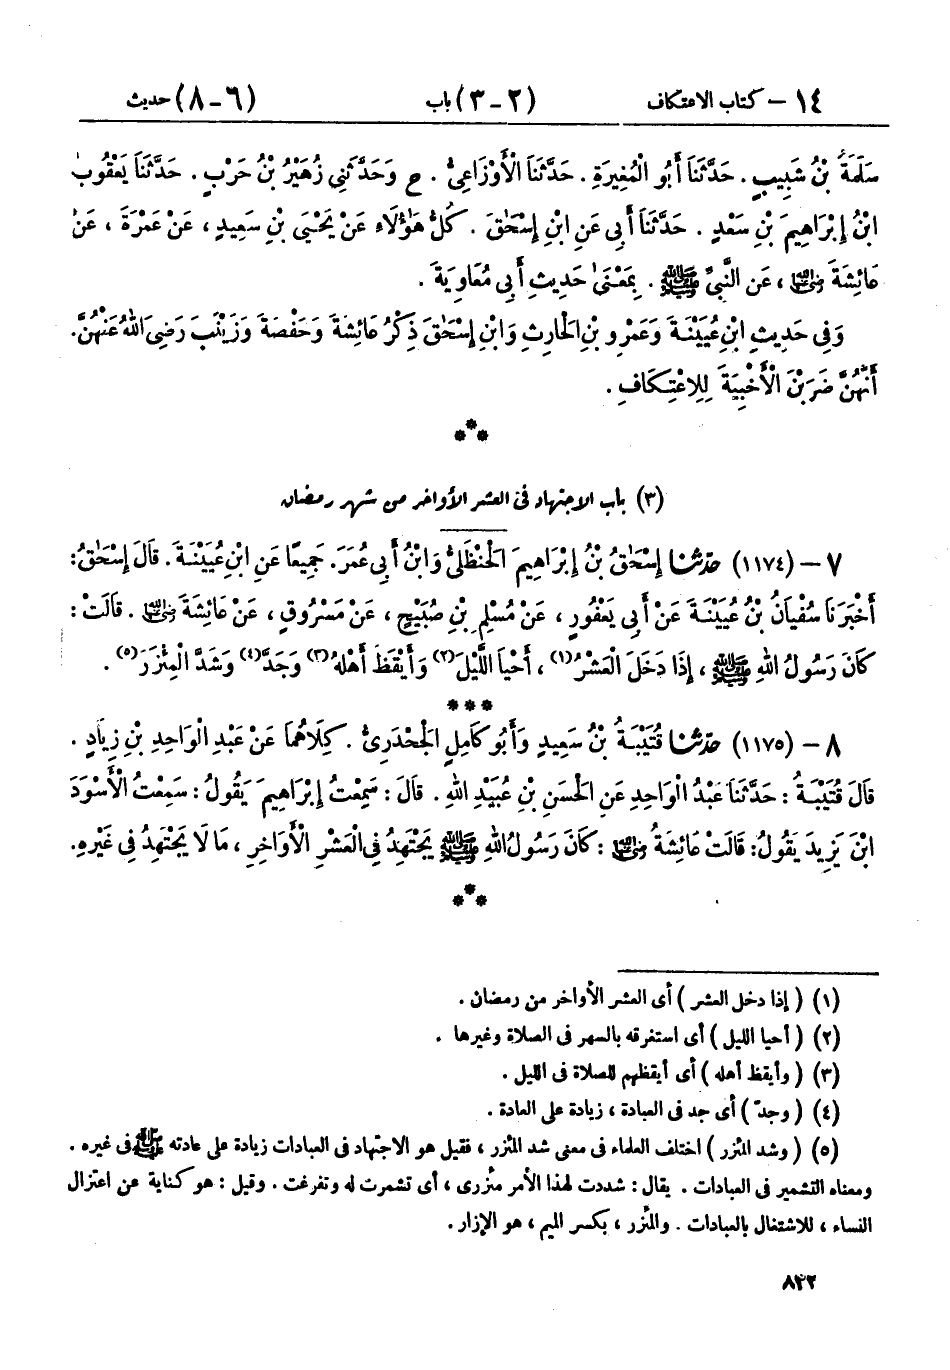 ١٤ – كتاب الاعتكاف (٢ – ٣) باب (٦ – ٨) حديث
سَلَمَةُ بْنُ شَبِيبٍ . حَدَّثَنَا أَبُو الْمُغِيرَةِ . حَدَّثَنَا الْأَوْزَاعِىُّ . ح وَحَدَّثَنِى زُهَيْرُ بْنُ حَرْبٍ . حَدَّثَنَا يَعْقُوبُ
ابْنُ إِبْرَاهِيمَ بْنِ سَعْدٍ . حَدَّثَنَا أَبِى عَنِ ابْنِ إِسْحَٰقَ . كُلُّ هَٰؤُلَاءِ عَنْ يَحْيَى بْنِ سَعِيدٍ ، عَنْ عَمْرَةَ ، عَنْ
عَائِشَةَ رضي الله عنها ، عَنِ النَّبِىِّ ﷺ . بِمَعْنَىٰ حَدِيثِ أَبِى مُعَاوِيَةَ .
وَفِى حَدِيثِ ابْنِ عُيَيْنَةَ وَعَمْرِو بْنِ الْحَارِثِ وَابْنِ إِسْحَٰقَ ذِكْرُ عَائِشَةَ وَحَفْصَةَ وَزَيْنَبَ رَضِىَ اللهُ عَنْهُنَّ.
أَنَّهُنَّ ضَرَبْنَ الْأَخْبِيَةَ لِلِاعْتِكَافِ .
***
(٣) باب الاجتهاد فى العشر الأواخر من شهر رمضان
٧ – (١١٧٤) حدثنا إِسْحَٰقُ بْنُ إِبْرَاهِيمَ الْحَنْظَلِىُّ وَابْنُ أَبِى عُمَرَ. جَمِيعًا عَنِ ابْنِ عُيَيْنَةَ . قَالَ إِسْحَٰقُ:
أَخْبَرَنَا سُفْيَانُ بْنُ عُيَيْنَةَ عَنْ أَبِى يَعْفُورٍ ، عَنْ مُسْلِمِ بْنِ صُبَيْحٍ ، عَنْ مَسْرُوقٍ ، عَنْ عَائِشَةَ رضي الله عنها . قَالَتْ :
كَانَ رَسُولُ اللهِ ﷺ ، إِذَا دَخَلَ الْعَشْرُ(١) ، أَحْيَا اللَّيْلَ(٢) وَأَيْقَظَ أَهْلَهُ(٣) وَجَدَّ(٤) وَشَدَّ الْمِئْزَرَ(٥) .
***
٨ – (١١٧٥) حدثنا قُتَيْبَةُ بْنُ سَعِيدٍ وَأَبُو كَامِلٍ الْجَحْدَرِىُّ . كِلَاهُمَا عَنْ عَبْدِ الْوَاحِدِ بْنِ زِيَادٍ .
قَالَ قُتَيْبَةُ : حَدَّثَنَا عَبْدُ الْوَاحِدِ عَنِ الْحَسَنِ بْنِ عُبَيْدِ اللهِ . قَالَ : سَمِعْتُ إِبْرَاهِيمَ يَقُولُ : سَمِعْتُ الْأَسْوَدَ
ابْنَ يَزِيدَ يَقُولُ: قَالَتْ عَائِشَةُ رضي الله عنها : كَانَ رَسُولُ اللهِ ﷺ يَجْتَهِدُ فِى الْعَشْرِ الْأَوَاخِرِ ، مَا لَا يَجْتَهِدُ فِى غَيْرِهِ.
***
(١) ( إذا دخل العشر ) أى العشر الأواخر من رمضان .
(٢) ( أحيا الليل ) أى استغرقه بالسهر فى الصلاة وغيرها .
(٣) ( وأيقظ أهله ) أى أيقظهم للصلاة فى الليل .
(٤) ( وجدّ ) أى جد فى العبادة ، زيادة على العادة .
(٥) ( وشد المئزر ) اختلف العلماء فى معنى شد المئزر ، فقيل هو الاجتهاد فى العبادات زيادة على عادته ﷺ فى غيره .
ومعناه التشمير فى العبادات . يقال : شددت لهذا الأمر مئزرى ، أى تشمرت له وتفرغت . وقيل : هو كناية عن اعتزال
النساء ، للاشتغال بالعبادات . والمئزر ، بكسر الميم ، هو الإزار .
٨٣٢